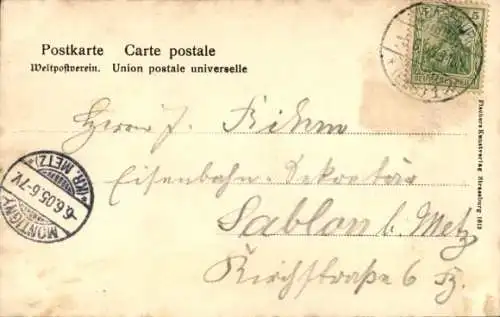 Postkarte Carte postale
Weltpostverein. Union postale universelle
5
Herrn J.
Eisenbahn-Sekretär
Sablon b. Metz
Kirchstraße 6
MONTIGNY
*(KR. METZ)*
6.6.05.6-7V.
Fischers Kunstverlag Strassburg